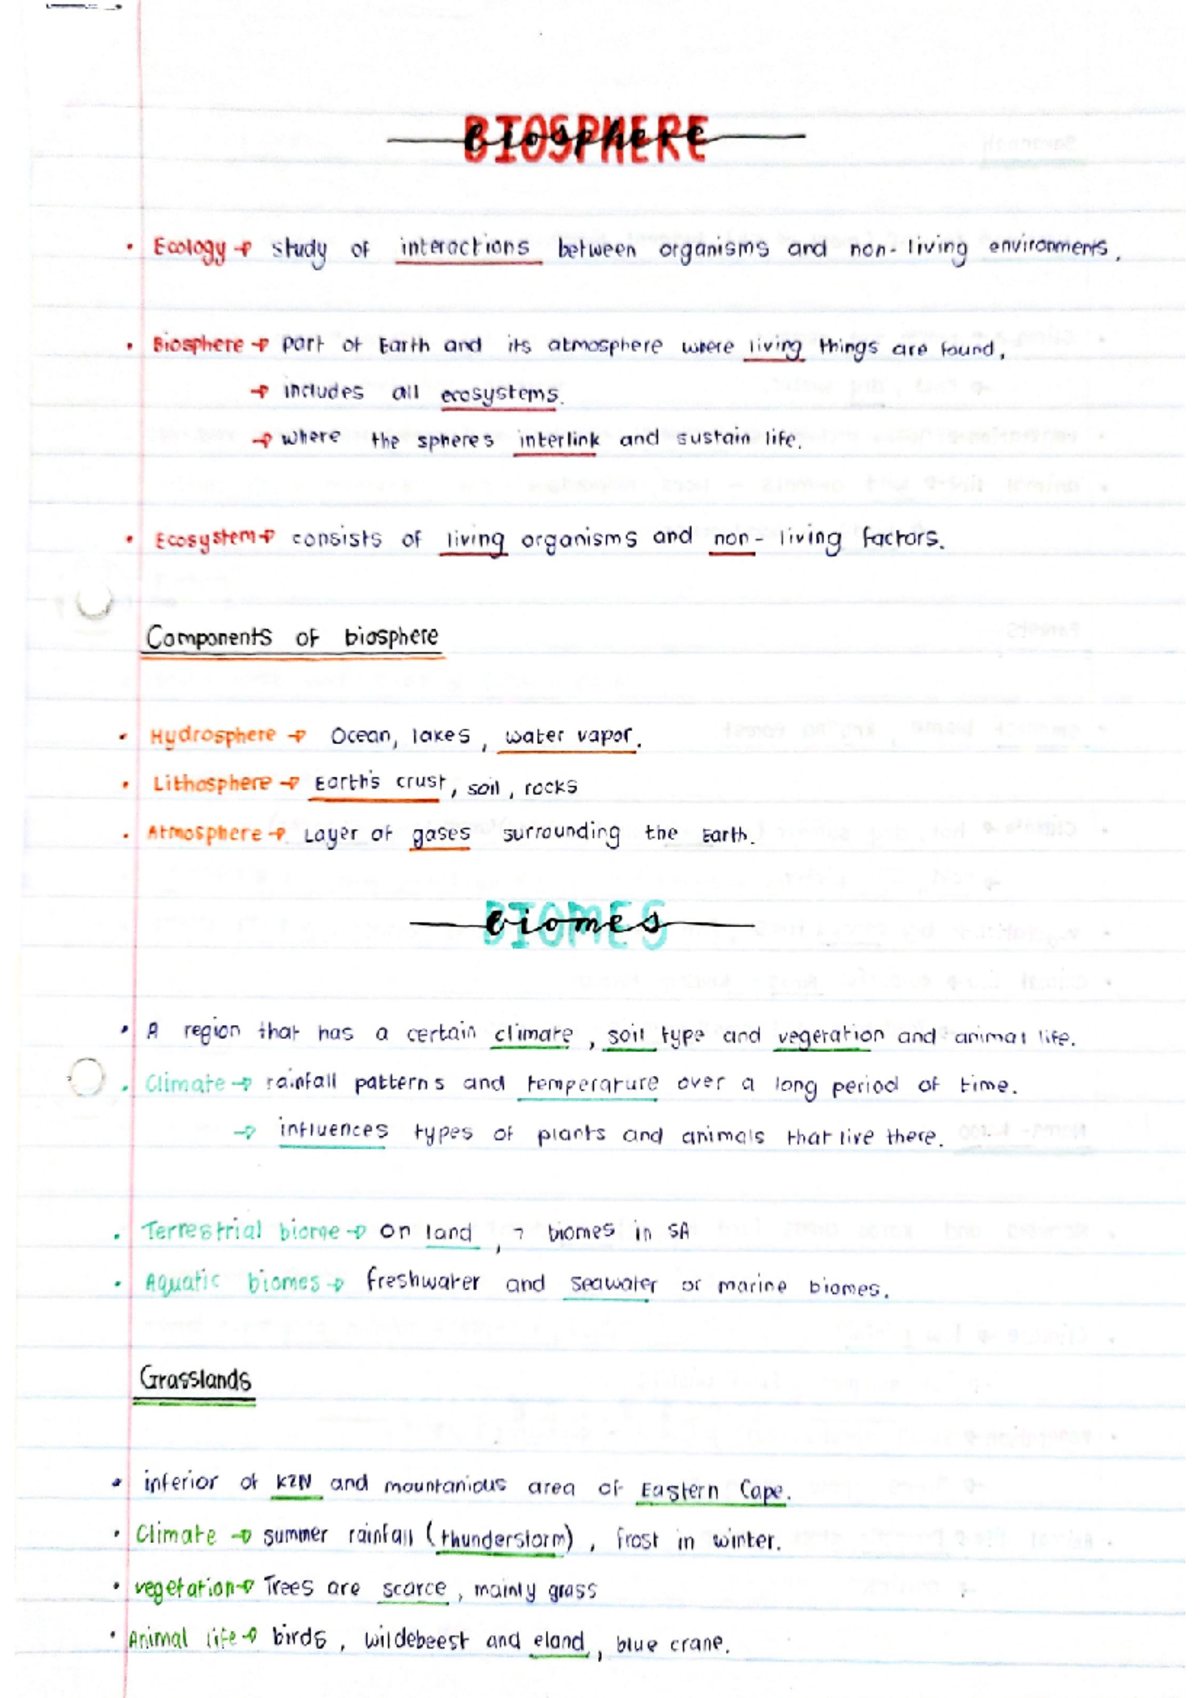 BIOSPHERE
biosphere
• Ecology → study of interactions between organisms and non-living environments.
• Biosphere → part of Earth and its atmosphere where living things are found.
→ includes all ecosystems.
→ where the spheres interlink and sustain life.
• Ecosystem → consists of living organisms and non-living factors.
Components of biosphere
• Hydrosphere → Ocean, lakes, water vapor.
• Lithosphere → Earth's crust, soil, rocks
• Atmosphere → Layer of gases surrounding the Earth.
BIOMES
biomes
• A region that has a certain climate, soil type and vegeration and animal life.
• Climate → rainfall patterns and temperature over a long period of time.
→ influences types of plants and animals that live there.
• Terrestrial biome → On land, 7 biomes in SA
• Aquatic biomes → freshwater and seawater or marine biomes.
Grasslands
• inferior of KZN and mountanious area of Eastern Cape.
• Climate → summer rainfall (thunderstorm), frost in winter.
• vegetation → Trees are scarce, mainly grass
• Animal life → birds, wildebeest and eland, blue crane.